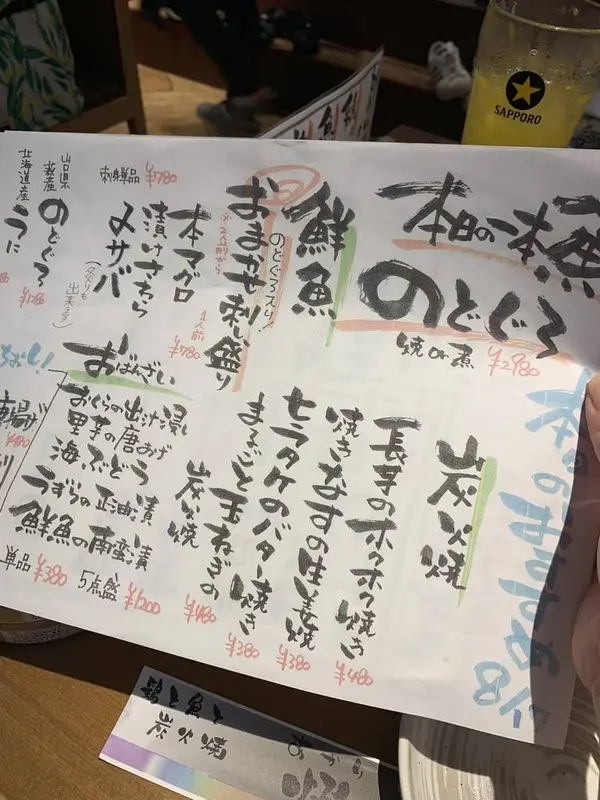 本日のおすすめ
本日の一本魚
のどぐろ
焼or煮 ¥2980
鮮魚
のどぐろ入り!
おまかせ刺し盛り
※2人前から
1人前
¥780
刺身単品 ¥780
本マグロ
漬けさわら
〆サバ
(炙りも出来ます)
山口県
萩産
のどぐろ
北海道産
うに
炭火焼
長芋のホクホク焼き ¥480
焼きなすの生姜焼 ¥380
モラタケのバター焼き ¥380
まるごと玉ねぎの
炭火焼 ¥480
おばんざい
おくらの出汁浸し
里芋の唐あげ
海ぶどう
うずらの正油漬
鮮魚の南蛮漬
単品 ¥380
5点盛 ¥1200
SAPPORO
鶏と魚と
炭火焼